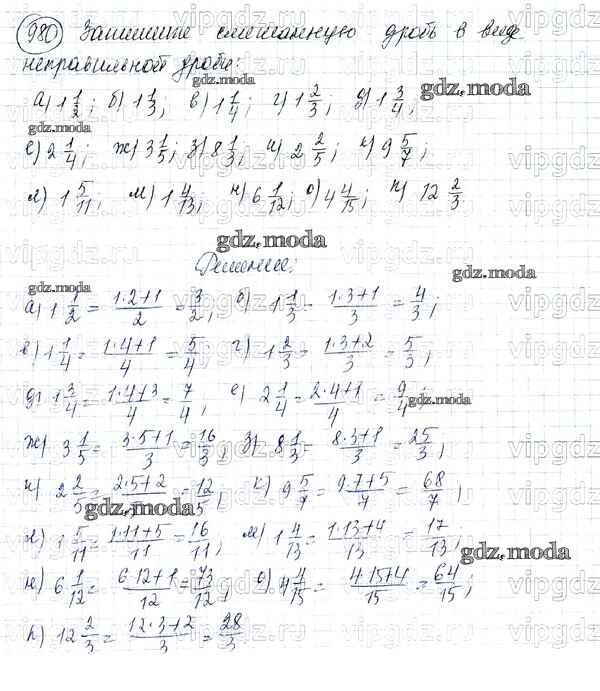 980 Запишите смешанную дробь в виде
неправильной дроби:
а) 1 1/2; б) 1 1/3; в) 1 1/4; г) 1 2/3; д) 1 3/4;
е) 2 1/4; ж) 3 1/5; з) 8 1/3; и) 2 2/5; к) 9 5/7;
л) 1 5/11; м) 1 4/13; н) 6 1/12; о) 4 4/15; п) 12 2/3.
Решение:
а) 1 1/2 = (1·2+1)/2 = 3/2; б) 1 1/3 = (1·3+1)/3 = 4/3;
в) 1 1/4 = (1·4+1)/4 = 5/4; г) 1 2/3 = (1·3+2)/3 = 5/3;
д) 1 3/4 = (1·4+3)/4 = 7/4; е) 2 1/4 = (2·4+1)/4 = 9/4;
ж) 3 1/5 = (3·5+1)/3 = 16/3; з) 8 1/3 = (8·3+1)/3 = 25/3;
и) 2 2/5 = (2·5+2)/5 = 12/5; к) 9 5/7 = (9·7+5)/7 = 68/7;
л) 1 5/11 = (1·11+5)/11 = 16/11; м) 1 4/13 = (1·13+4)/13 = 17/13;
н) 6 1/12 = (6·12+1)/12 = 73/12; о) 4 4/15 = (4·15+4)/15 = 64/15;
п) 12 2/3 = (12·3+2)/3 = 28/3
gdz.moda
vipgdz.ru